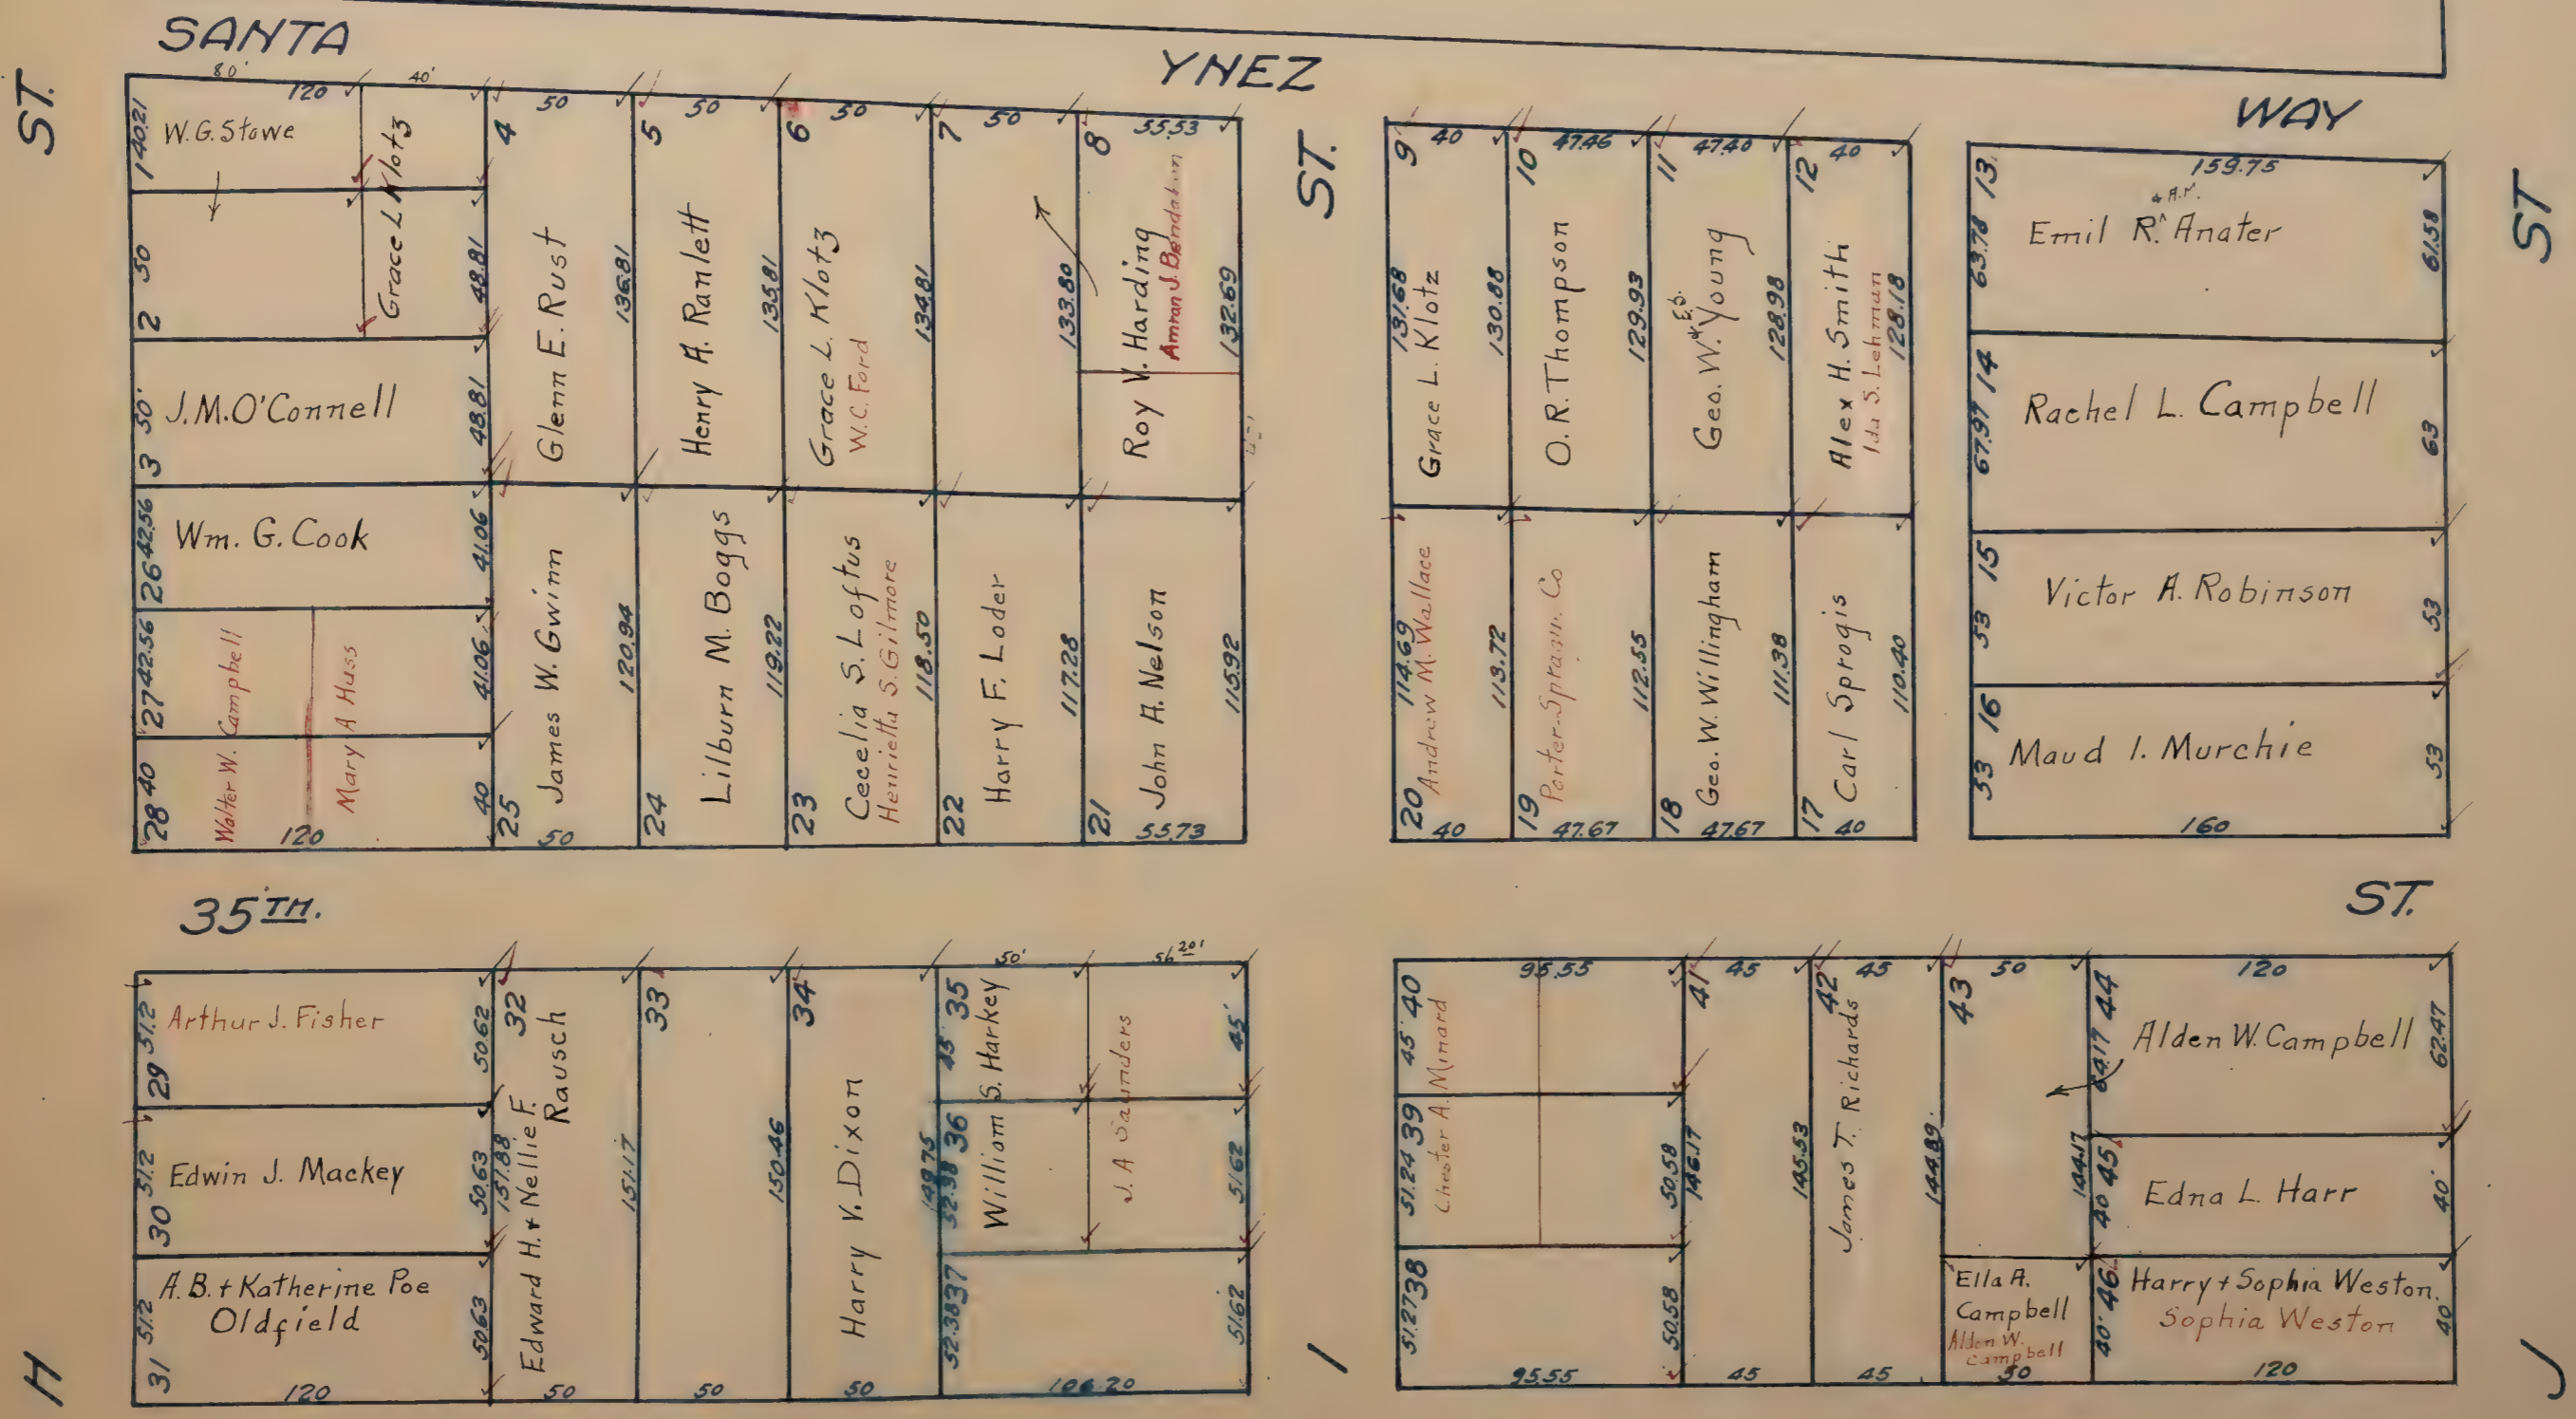 SANTA YNEZ WAY
ST.
ST.
ST
80'
120
40'
1 40.21
W.G. Stowe
Grace L Klotz
2 50
48.81
3 50'
J.M. O'Connell
48.81
26 42.56
Wm. G. Cook
41.06
27 42.56
41.06
28 40
Walter W. Campbell
Mary A Huss
40
120
4
50
Glenn E. Rust
136.81
5
50
Henry A. Ramlett
135.81
6
50
Grace L. Klotz
W.C. Ford
134.81
7
50
133.80
8
55.53
Roy V. Harding
Amran J.
132.69
25
James W. Gwinn
120.94
50
24
Lilburn M. Boggs
119.22
23
Cecelia S. Loftus
Henrietta S. Gilmore
118.50
22
Harry F. Loder
117.28
21
John A. Nelson
115.92
55.73
9
40
131.68
Grace L. Klotz
130.88
10
47.46
O.R. Thompson
129.93
11
47.40
Geo. W. & E.S. Young
128.98
12
40
Alex H. Smith
Ida S. Lehman
128.18
20
114.69
Andrew M. Wallace
40
113.72
19
Porter-Co
47.67
112.55
18
Geo. W. Willingham
47.67
111.38
17
Carl Sprogis
40
110.40
13
159.75
63.78
& A.M.
Emil R. ^ Anater
61.58
14
67.97
Rachel L. Campbell
63
15
53
Victor A. Robinson
53
16
53
Maud I. Murchie
53
160
35TH. ST.
29 51.2
Arthur J. Fisher
50.62
30 51.2
Edwin J. Mackey
50.63
31 51.2
A.B. + Katherine Poe
Oldfield
50.63
120
32
151.88
Edward H. + Nellie F.
Rausch
50
151.17
33
50
150.46
34
Harry V. Dixon
50
149.75
50'
56 20'
35
45'
William S. Harkey
J. A Saunders
45'
36
52.38
51.62
37
52.38
51.62
106.20
95.55
40
45'
Chester A. Minard
39
51.24
50.58
38
51.27
50.58
95.55
41
45
146.17
45
145.53
42
45
James T. Richards
45
144.89
43
50
144.17
Ella A.
Campbell
Alden W.
Campbell
50
44
120
64.17
Alden W. Campbell
62.47
45
40
Edna L. Harr
40'
46
40'
Harry + Sophia Weston.
Sophia Weston
40
120
H
I
J